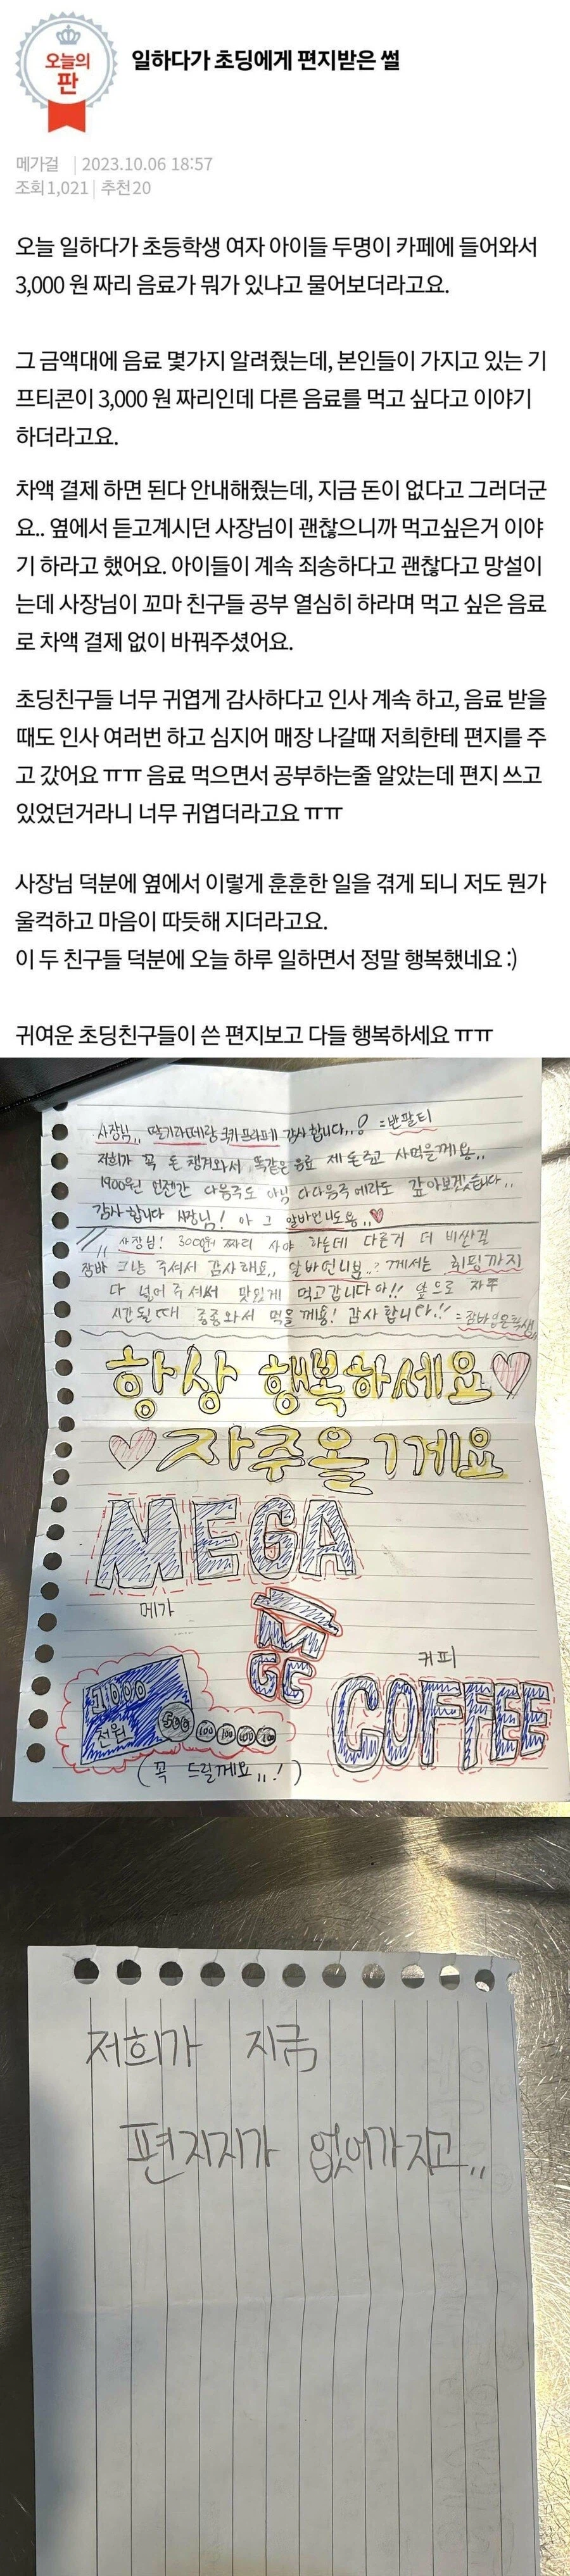 오늘의
판
일하다가 초딩에게 편지받은 썰
메가걸 | 2023.10.06 18:57
조회 1,021 | 추천 20
오늘 일하다가 초등학생 여자 아이들 두명이 카페에 들어와서
3,000 원 짜리 음료가 뭐가 있냐고 물어보더라고요.
그 금액대에 음료 몇가지 알려줬는데, 본인들이 가지고 있는 기
프티콘이 3,000 원 짜리인데 다른 음료를 먹고 싶다고 이야기
하더라고요.
차액 결제 하면 된다 안내해줬는데, 지금 돈이 없다고 그러더군
요.. 옆에서 듣고계시던 사장님이 괜찮으니까 먹고싶은거 이야
기 하라고 했어요. 아이들이 계속 죄송하다고 괜찮다고 망설이
는데 사장님이 꼬마 친구들 공부 열심히 하라며 먹고 싶은 음료
로 차액 결제 없이 바꿔주셨어요.
초딩친구들 너무 귀엽게 감사하다고 인사 계속 하고, 음료 받을
때도 인사 여러번 하고 심지어 매장 나갈때 저희한테 편지를 주
고 갔어요 ㅠㅠ 음료 먹으면서 공부하는줄 알았는데 편지 쓰고
있었던거라니 너무 귀엽더라고요 ㅠㅠ
사장님 덕분에 옆에서 이렇게 훈훈한 일을 겪게 되니 저도 뭔가
울컥하고 마음이 따듯해 지더라고요.
이 두 친구들 덕분에 오늘 하루 일하면서 정말 행복했네요 :)
귀여운 초딩친구들이 쓴 편지보고 다들 행복하세요 ㅠㅠ
사장님,, 딸기라떼랑 쿠키프라페 감사합니다,,! =반팔티
저희가 꼭 돈 챙겨와서 똑같은 음료 제돈주고 사먹을께요,,
1900원 언젠간 다음주도 아님 다다음주 에라도 갚아보겠습니다,,
감사합니다 사장님! 아 그 알바언니도용,,♥
사장님! 3000원 짜리 사야 하는데 다른거 더 비싼걸
그냥 주셔서 감사해요,, 알바언니분..? 께서는 휘핑까지
다 넣어주셔써 맛있게 먹고갑니다아!! 앞으로 자주
시간될때 종종와서 먹을께용! 감사합니다!! =잠바입은학생,,
잠바
항상 행복하세요♡
♡자주올게요
MEGA
메가
M
GC
커피
COFFEE
1000
천원
500 100 100 100 100
(꼭 드릴께요,,!)
저희가 지금
편지지가 없어가지고..